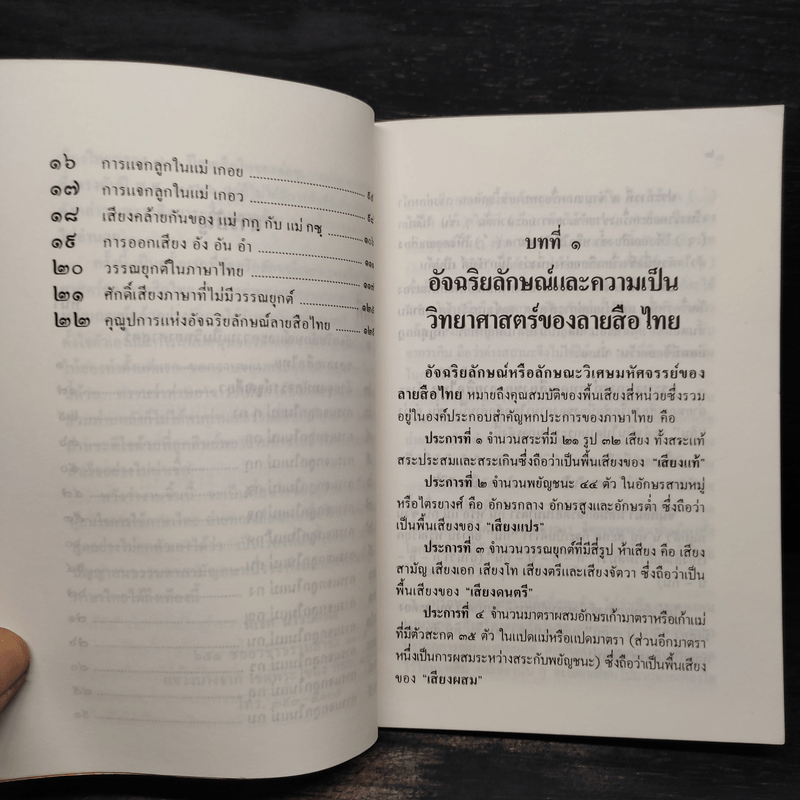 ๑๖ การแจกลูกในแม่ เกอย
๑๗ การแจกลูกในแม่ เกอว
๑๘ เสียงคล้ายกันของ แม่ กกฺ กับ แม่ กซฺ
๑๙ การออกเสียง อัง อัน อำ
๒๐ วรรณยุกต์ในภาษาไทย
๒๑ ศักดิ์เสียงภาษาที่ไม่มีวรรณยุกต์
๒๒ คุณูปการแห่งอัจฉริยลักษณ์ลายสือไทย
บทที่ ๑
อัจฉริยลักษณ์และความเป็น
วิทยาศาสตร์ของลายสือไทย
อัจฉริยลักษณ์หรือลักษณะวิเศษมหัศจรรย์ของ
ลายสือไทย หมายถึงคุณสมบัติของพื้นเสียงสี่หน่วยซึ่งรวม
อยู่ในองค์ประกอบสำคัญหกประการของภาษาไทย คือ
ประการที่ ๑ จำนวนสระที่มี ๒๑ รูป ๓๒ เสียง ทั้งสระแท้
สระประสมและสระเกินซึ่งถือว่าเป็นพื้นเสียงของ "เสียงแท้"
ประการที่ ๒ จำนวนพยัญชนะ ๔๔ ตัว ในอักษรสามหมู่
หรือไตรยางศ์ คือ อักษรกลาง อักษรสูงและอักษรต่ำ ซึ่งถือว่า
เป็นพื้นเสียงของ "เสียงแปร"
ประการที่ ๓ จำนวนวรรณยุกต์ที่มีสี่รูป ห้าเสียง คือ เสียง
สามัญ เสียงเอก เสียงโท เสียงตรีและเสียงจัตวา ซึ่งถือว่าเป็น
พื้นเสียงของ "เสียงดนตรี"
ประการที่ ๔ จำนวนมาตราผสมอักษรเก้ามาตราหรือเก้าแม่
ที่มีตัวสะกด ๓๕ ตัว ในแปดแม่หรือแปดมาตรา (ส่วนอีกมาตรา
หนึ่งเป็นการผสมระหว่างสระกับพยัญชนะ) ซึ่งถือว่าเป็นพื้นเสียง
ของ "เสียงผสม"